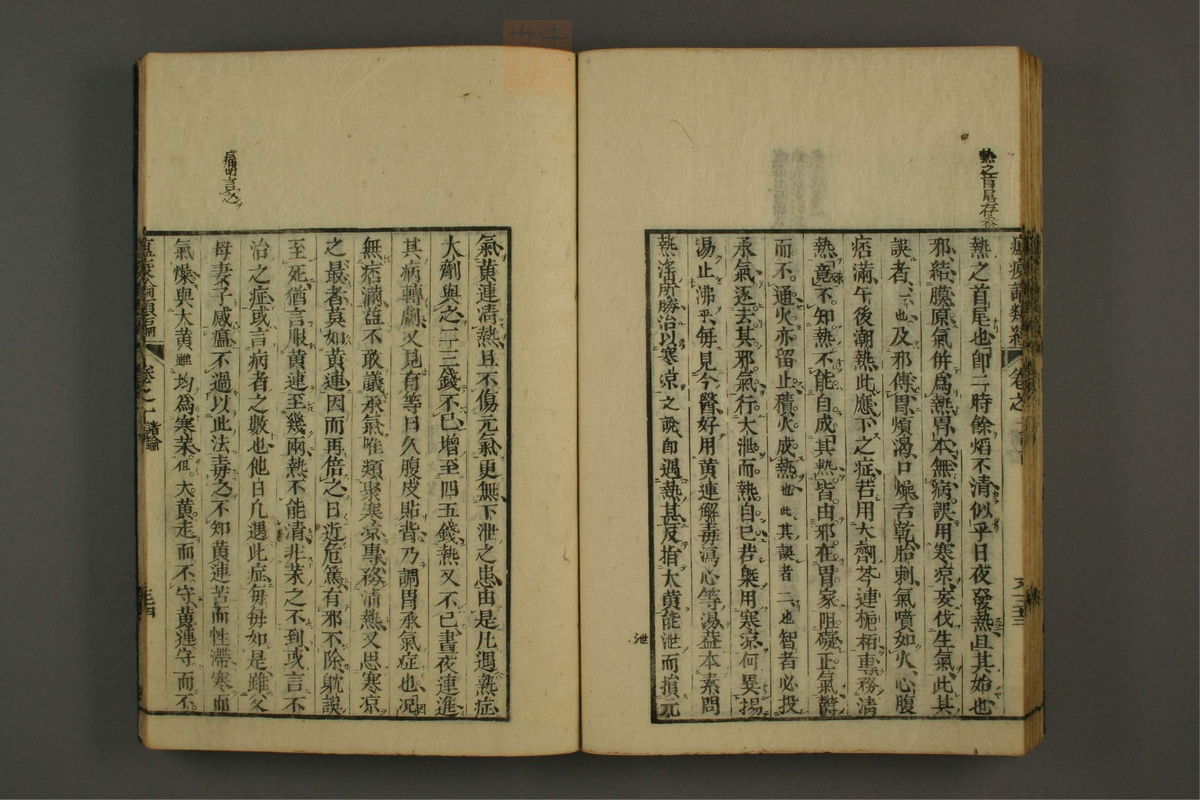 熱之首尾也即二時餘熖不清似乎日夜發熱且其始也
邪結膜原氣併爲熱胃本無病誤用寒凉妄伐生氣此其
誤者一也及邪傳胃煩渴口燥舌乾胎刺氣噴如火心腹
痞滿午後潮熱此應下之症若用大劑芩連梔栢專務清
熱竟不知熱不能自成其熱皆由邪在胃家阻礙正氣欝
而不通火亦留止積火成熱也此其誤者二也智者必投
承氣逐去其邪氣行大泄而熱自已若槩用寒凉何異揚
湯止沸乎毎見今醫好用黄連解毒瀉心等湯益本素問
熱淫所勝治以寒凉之說即遇熱甚反指大黄能泄而損元
氣黄連清熱且不傷元氣更無下泄之患由是凡遇熱症
大劑與之二三錢不已增至四五錢熱又不已晝夜連進
其病轉劇又見有等日久腹皮貼背乃謂胃承氣症也况
無痞滿益不敢議承氣唯類聚寒凉專務清熱又思寒凉
之最者莫如黄連因而再倍之日近危篤有邪不除躭誤
至死猶言服黄連至幾兩熱不能清非茱之不到或言不
治之症或言病者之數也他日凡遇此症毎毎如是雖父
母妻子感瘟不過以此法毒之不知黄連苦而性滯寒而
氣燥與大黄雖均爲寒茱但大黄走而不守黄連守而不
熱之首尾存
痛哉言之
泄
瘟疫論類編
卷之一
諸論